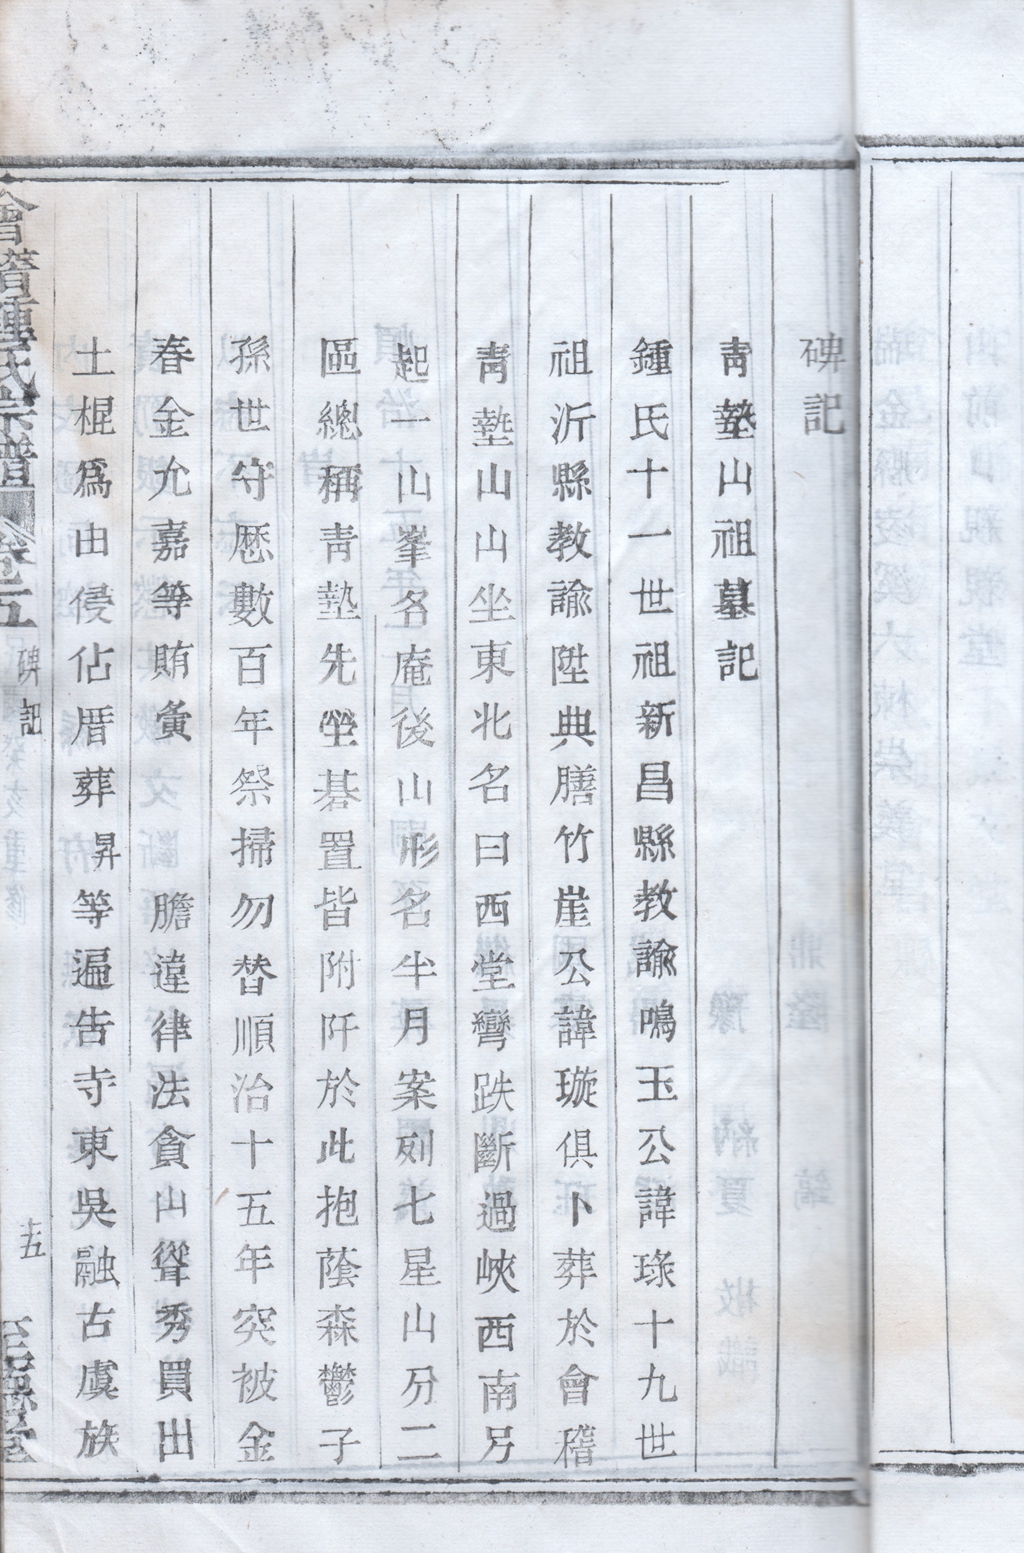 碑記
靑墊山祖墓記
鍾氏十一世祖新昌縣教諭鳴玉公諱琭十九世
祖沂縣教諭陞典膳竹崖公諱璇俱卜葬於會稽
靑墊山山坐東北名曰西堂彎跌斷過峽西南另
起一山峯名庵後山形名半月案列七星山分二
區總稱靑墊先塋碁置皆附阡於此抱蔭森鬱子
孫世守歷數百年祭掃勿替順治十五年突被金
春金允嘉等賄黃 膽違律法貪山聳秀買出
土棍爲由侵佔厝葬昇等遍告寺東吳融古虞族
會稽鍾氏宗譜 卷之五 碑記 十五